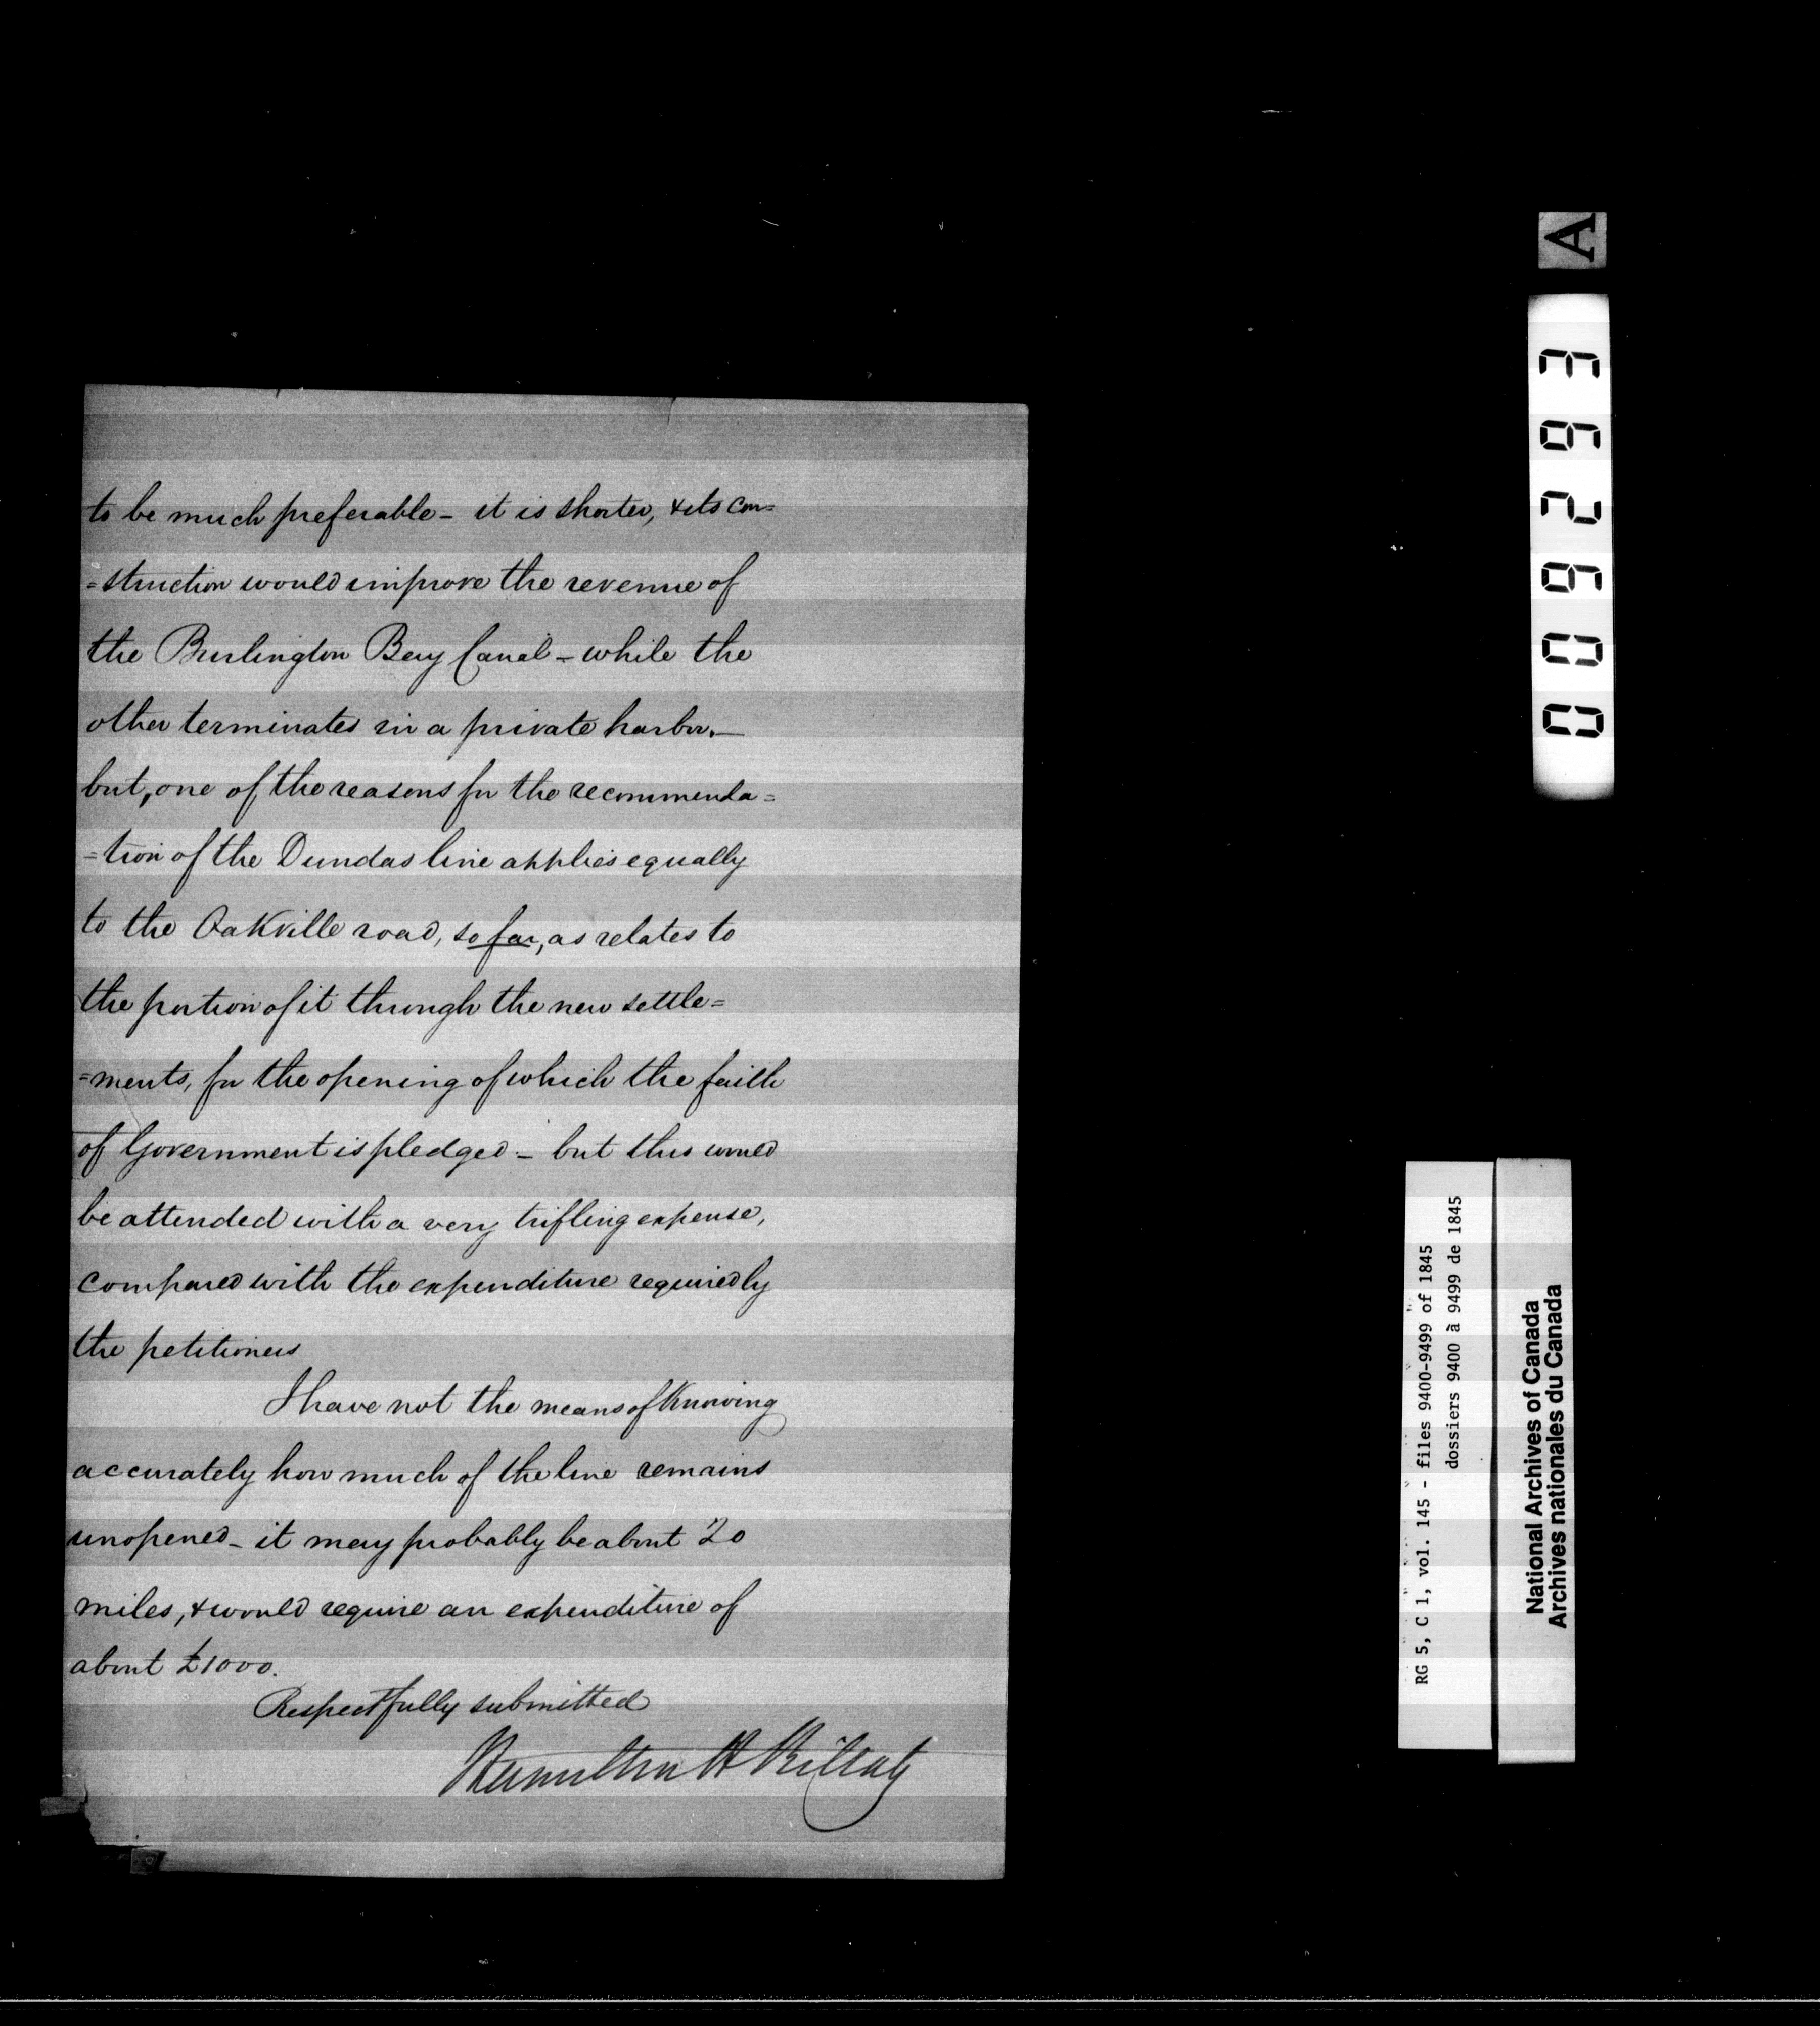 to be much preferable - it is shorter, & its con=
=struction would improve the revenue of
the Burlington Bay Canal - while the
other terminates in a private harbor. -
but, one of the reasons for the recommenda=
=tion of the Dundas line applies equally
to the Oakville road, so far, as relates to
the portion of it through the new settle=
=ments, for the opening of which the faith
of Government is pledged - but this would
be attended with a very trifling expense,
compared with the expenditure required by
the petitioners
I have not the means of knowing
accurately how much of the line remains
unopened - it may probably be about 20
miles, & would require an expenditure of
about £1000.
Respectfully submitted
Hamilton H Killaly
A
009263
RG 5, C 1, vol. 145 - files 9400-9499 of 1845
dossiers 9400 à 9499 de 1845
National Archives of Canada
Archives nationales du Canada